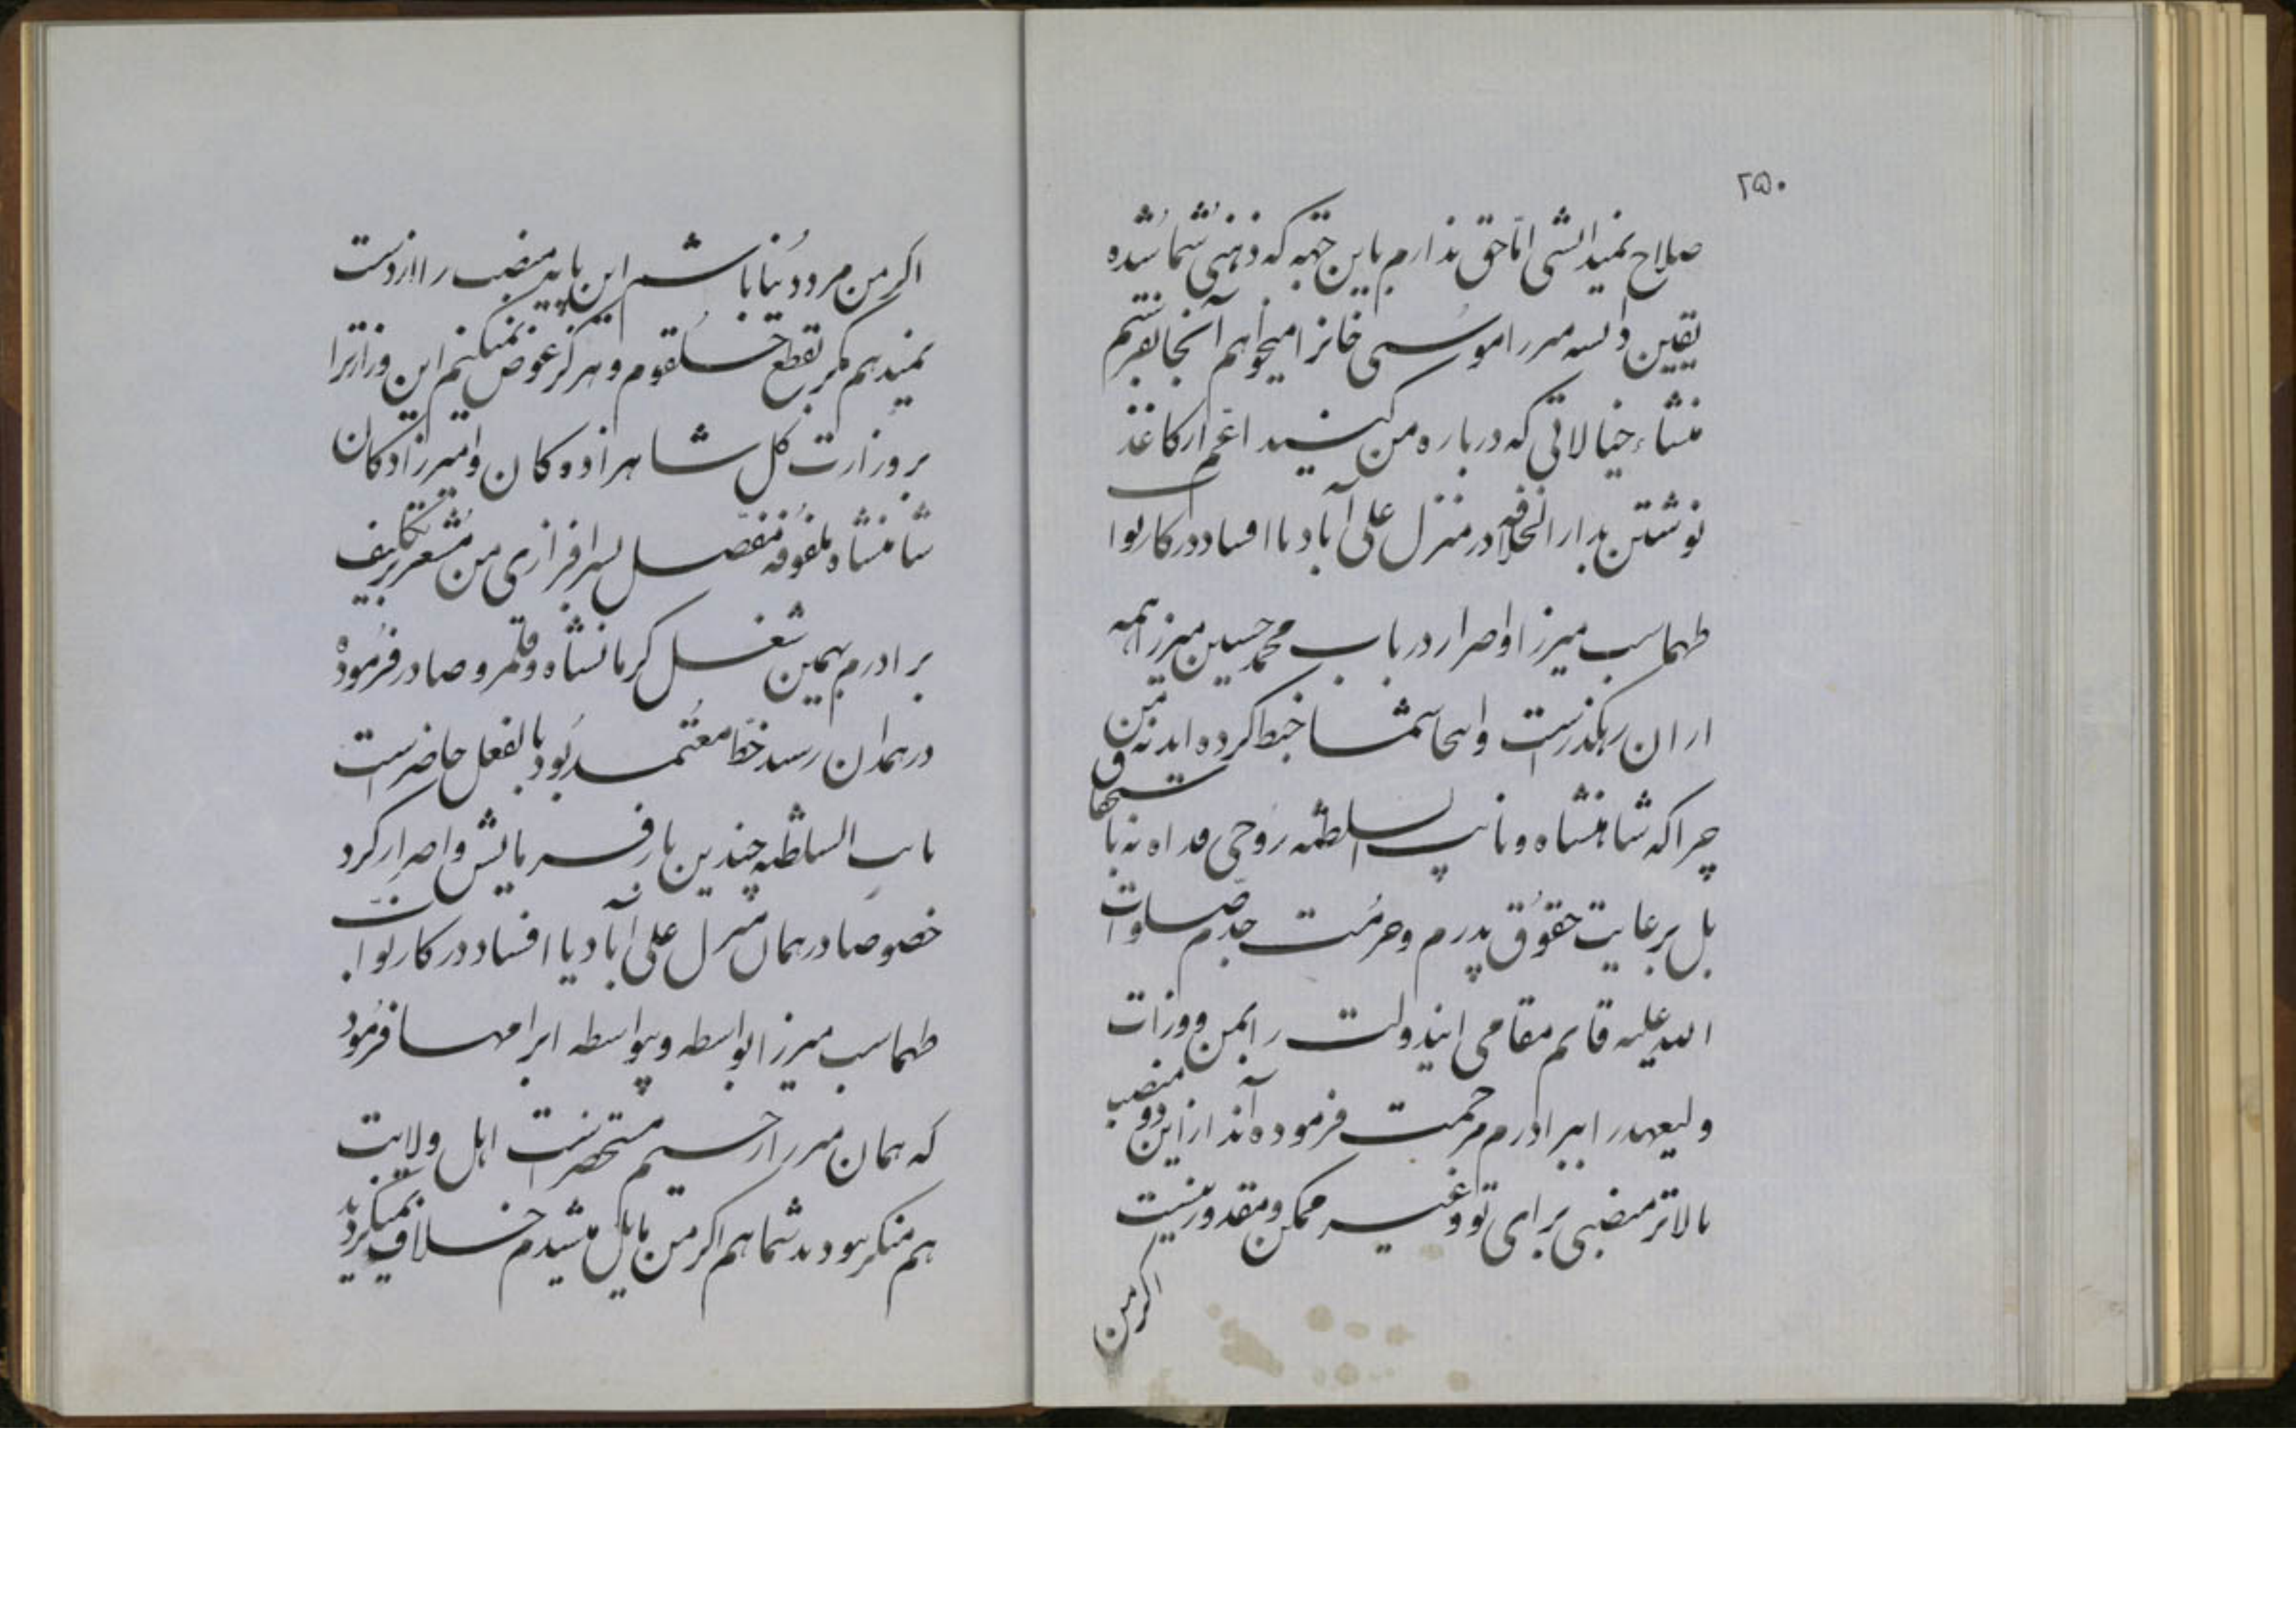 ۲۵۰
صلاح نمیدانستی اما حق ندارم باین جهه که ذهنی شما شده
یقین دانسته میرزا موسی خانرا میخواهم آنجا بفرستم
منشاء خیالاتی که درباره من کنید اعم از کاغذ
نوشتن بدار الخلافه در منزل علی آباد یا افساد در کار نوا
طهماسب میرزا و اصرار در باب محمد حسین میرزا همه
از ان رهگذرست و اینجا شما خبط کرده اید نه من
چرا که شاهنشاه و نایب السلطنه روحی فداه نه باستحقاق
بل برعایت حقوق پدرم و حرمت جدم صلوات
الله علیه قایم مقامی ایندولت را بمن و وزارت
ولیعهد را ببرادرم مرحمت فرموده اند از این دو منصب
بالاتر منصبی برای تو و غیر ممکن و مقدور نیست
اگر من
اگر من مرد دنیا باشم این پایه منصب را از دست
نمیدهم مگر بقطع حلقوم و هرگز عوض نمیکنم این وزارترا
بر وزارت کل شاهزادهکان و امیرزادکان
شاهنشاه ملفوفه مفصل بسرافرازی من مشعر بر تکلیف
برادرم بهمین شغل کرمانشاه و قلمرو صادر فرموده
در همدان رسید خط معتمد بود بالفعل حاضرست
نایب السلطنه چندین بار فرمایش و اصرار کرد
خصوصا در همان منزل علی آباد یا افساد در کار نواب
طهماسب میرزا بواسطه و بیواسطه ابرامها فرمود
که همان میرزا رحیم مستحضرست اهل ولایت
هم منکر نبودند شما هم اگر من مایل میشدم خلاف نمیکردید